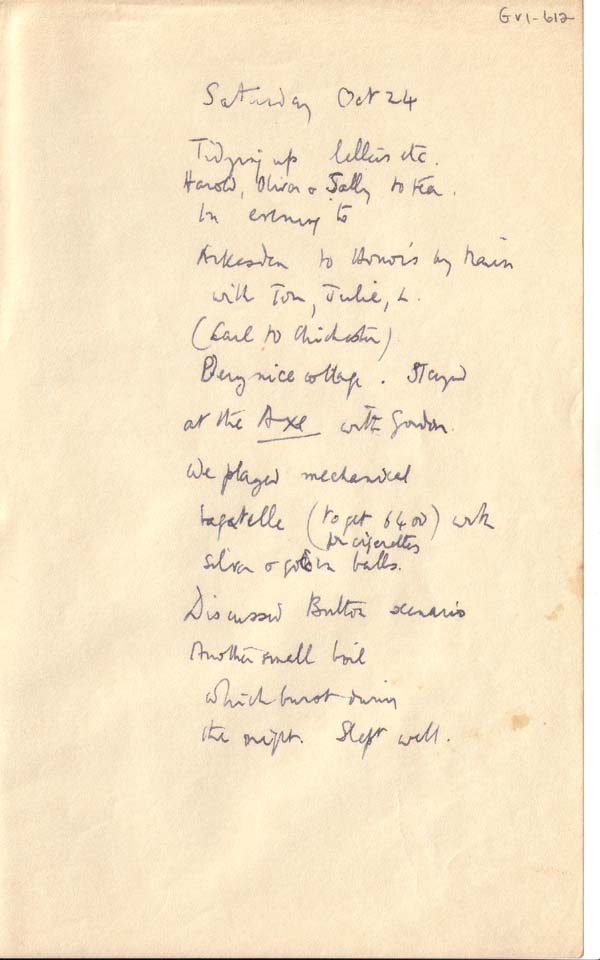 GV1-612
Saturday Oct 24
Tidying up letters etc.
Harold, Oliver & Sally to tea.
In evening to
Arkesden to Honor's by train
with Tom, Julie, L.
(Earl to Chichester)
Very nice cottage. Stayed
at the Axe with Gordon.
We played mechanical
bagatelle (to get 6400) with
for cigarettes
silver & golden balls.
Discussed Button scenario
Another small boil
which burst during
the night. Slept well.